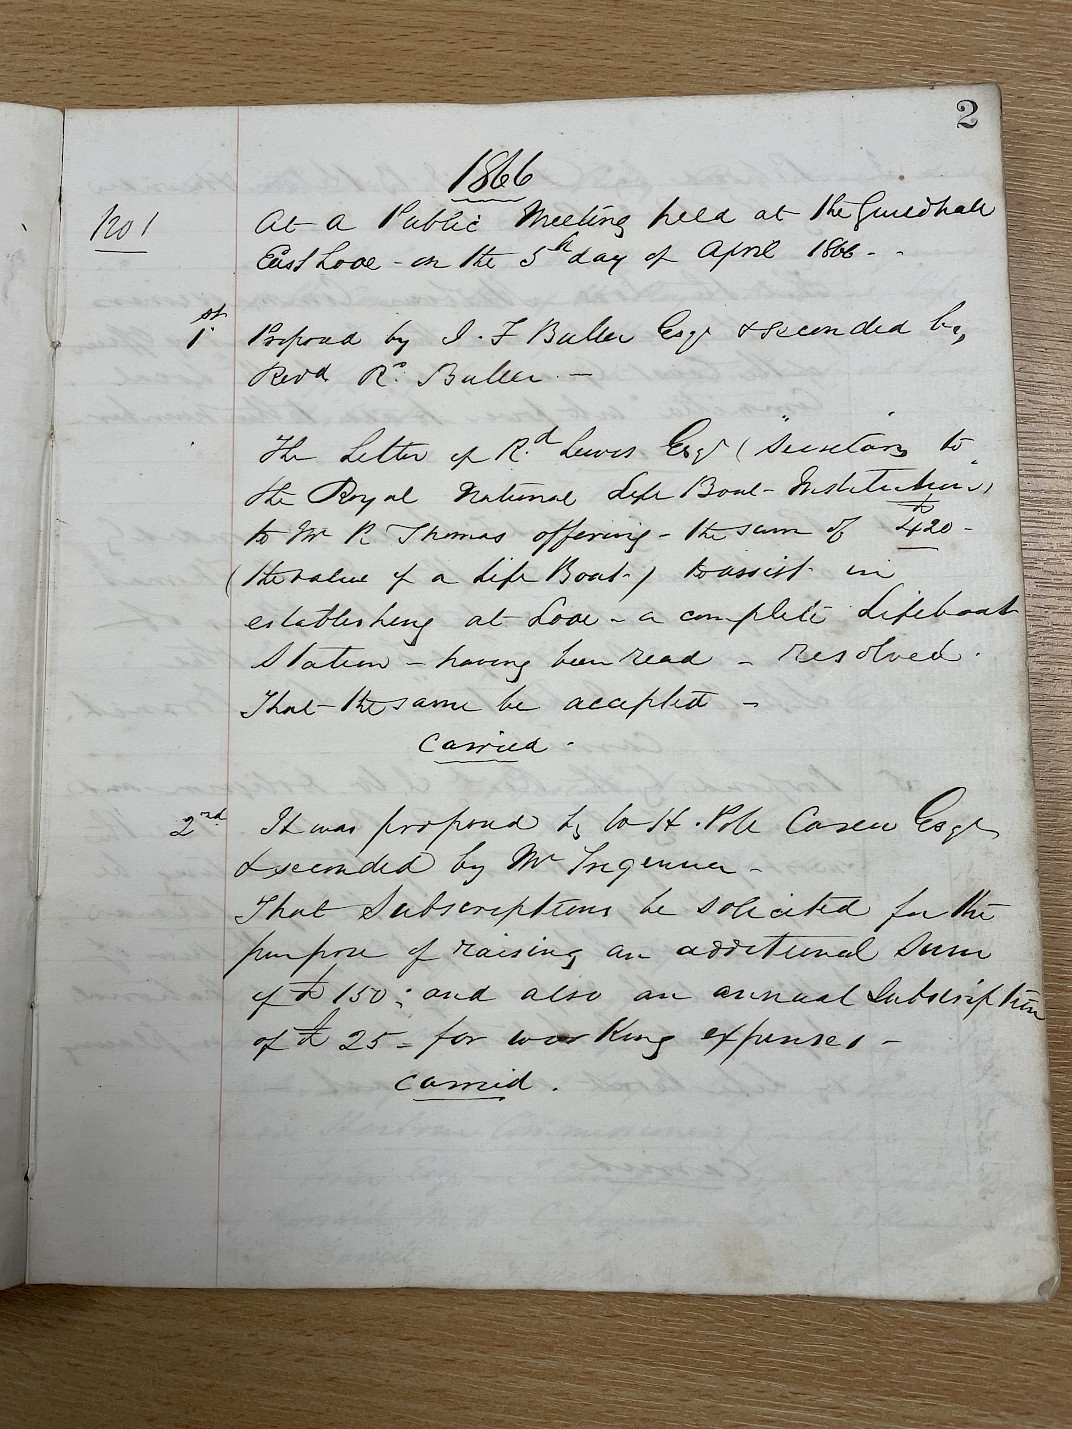 2
1866
No 1
At a Public Meeting held at the Guildhall
East Looe - on the 5th day of April 1866 - -
1st
Propod by J. F Buller Esqr & seconded by,
Revd Rd. Buller. -
The Letter of Rd Lewis Esqr ("Secretary to
the Royal National Life Boat - Institution")
to Mr R Thomas offering - the sum of £420 -
(the value of a Life Boat -) to assist in
establishing at Looe - a complete Lifeboat
Station - having been read - resolved.
That - the same be accepted -
Carried -
2nd
It was propod by W H. Pole Carew Esqr
& seconded by Mr Tregenna -
That Subscriptions be solicited for the
purpose of raising an additional Sum
of £150; and also an annual Subscription
of £25 - for working expenses -
Carried.